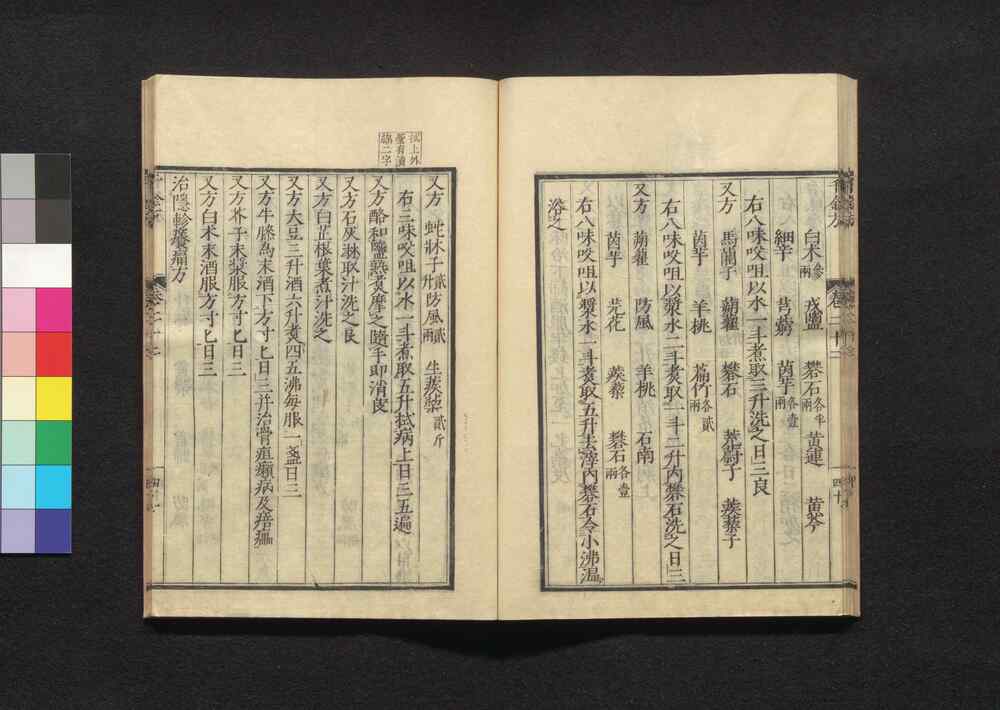 白朮叁兩 戎鹽 礬石各半兩 黃連 黃芩
細辛 芎藭 茵芋各壹兩
右八味㕮咀以水一斗煮取三升洗之日三良
又方 馬藺子 蒴藋 礬石 茺蔚子 蒺蔾子
茵芋 羊桃 萹竹各貳兩
右八味㕮咀以漿水二斗煮取一斗二升內礬石洗之日三
又方 蒴藋 防風 羊桃 石南
茵芋 芫花 蒺蔾 礬石各壹兩
右八味㕮咀以漿水一斗煮取五升去滓內礬石令小沸溫
浴之
又方 虵牀子貳升 防風貳兩 生蒺蔾貳斤
右三味㕮咀以水一斗煮取五升拭病上日三五遍
拭上外
臺有漬
綿二字
又方酪和鹽熟煮摩之隨手即消良
又方石灰淋取汁洗之良
又方白芷根葉煮汁洗之
又方大豆三升酒六升煮四五沸每服一盞日三
又方牛膝為末酒下方寸匕日三并治骨疽癩病及㾦㿔
又方芥子末漿服方寸匕日三
又方白朮末酒服方寸匕日三
治隱軫癢痛方